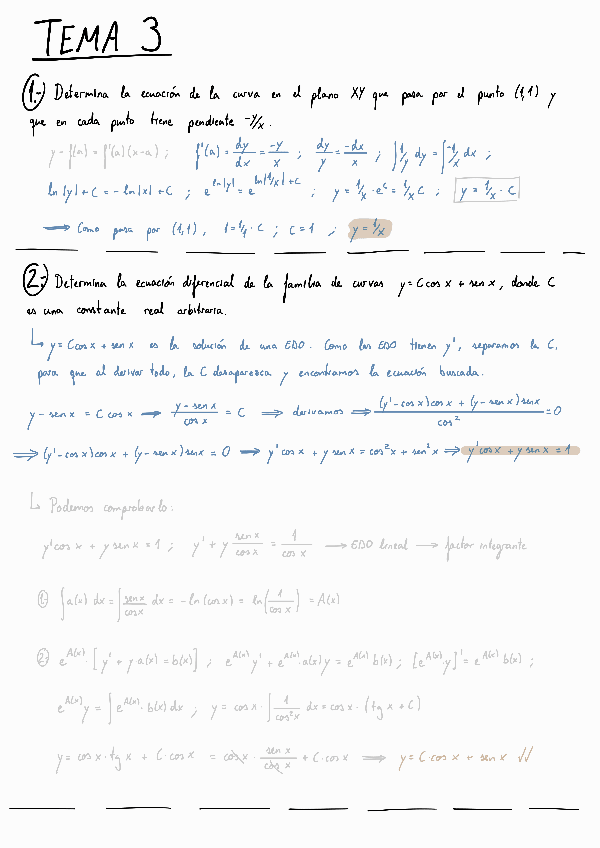 TEMA 3
1.- Determina la ecuación de la curva en el plano XY que pasa por el punto (1,1) y
que en cada punto tiene pendiente -y/x.
y - f(a) = f'(a)(x-a) ; f'(a) = dy/dx = -y/x ; dy/y = -dx/x ; ∫1/y dy = ∫-1/x dx ;
ln|y| + C = -ln|x| + C ; e^ln|y| = e^ln|1/x|+C ; y = 1/x · e^C = 1/x C ; y = 1/x · C
→ Como pasa por (1,1), 1 = 1/1 · C ; C = 1 ; y = 1/x
2.- Determina la ecuación diferencial de la familia de curvas y = C cos x + sen x, donde C
es una constante real arbitraria.
↳ y = C cos x + sen x es la solución de una EDO. Como las EDO tienen y', separamos la C,
para que al derivar todo, la C desaparezca y encontramos la ecuación buscada.
y - sen x = C cos x → y - sen x/cos x = C ⇒ derivamos ⇒ (y' - cos x) cos x + (y - sen x) sen x/cos² = 0
⇒ (y' - cos x) cos x + (y - sen x) sen x = 0 → y' cos x + y sen x = cos² x + sen² x ⇒ y' cos x + y sen x = 1
↳ Podemos comprobarlo:
y' cos x + y sen x = 1 ; y' + y sen x/cos x = 1/cos x → EDO lineal → factor integrante
1- ∫a(x) dx = ∫sen x/cos x dx = -ln(cos x) = ln(1/cos x) = A(x)
2- e^A(x) · [y' + y·a(x) = b(x)] ; e^A(x) y' + e^A(x)·a(x) y = e^A(x) b(x) ; [e^A(x)·y]' = e^A(x) b(x) ;
e^A(x) y = ∫e^A(x)·b(x) dx ; y = cos x · ∫1/cos² x dx = cos x · (tg x + C)
y = cos x · tg x + C·cos x = cos x · sen x/cos x + C·cos x ⇒ y = C·cos x + sen x √√